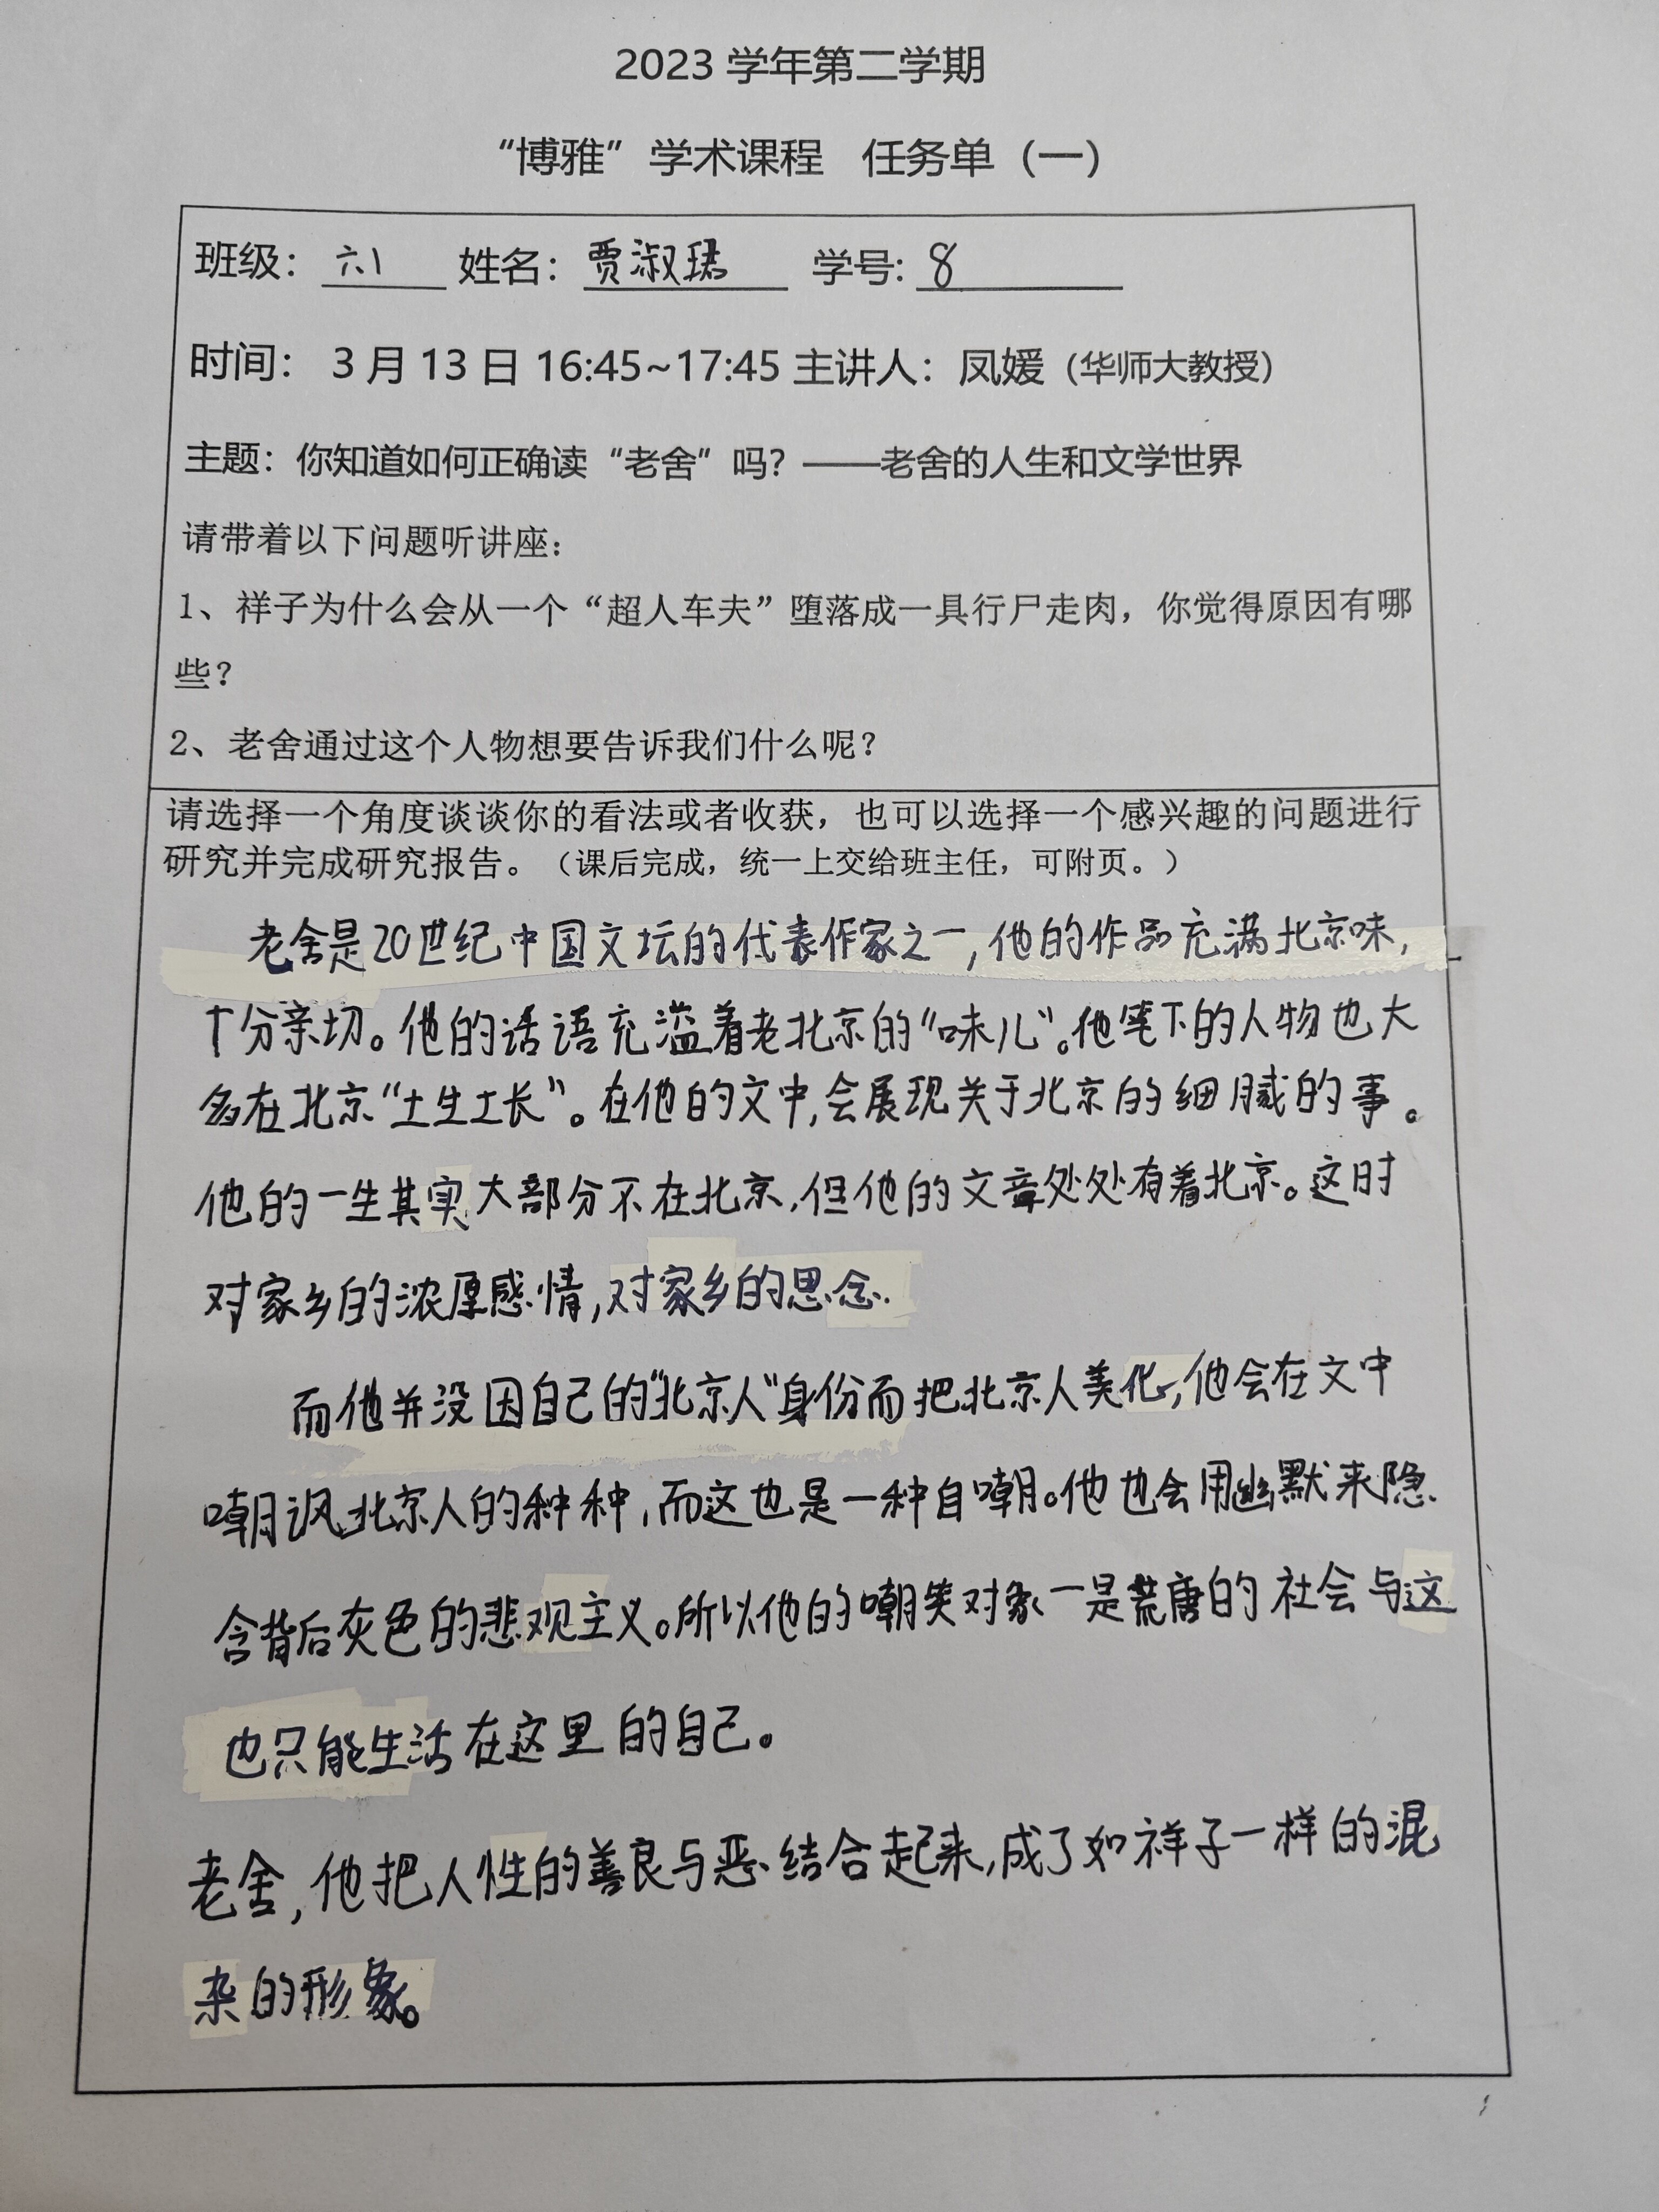 2023 学年第二学期
“博雅”学术课程 任务单（一）
班级：六1 姓名：贾淑珺 学号：8
时间： 3 月 13 日 16:45~17:45 主讲人：凤媛（华师大教授）
主题：你知道如何正确读“老舍”吗？——老舍的人生和文学世界
请带着以下问题听讲座：
1、祥子为什么会从一个“超人车夫”堕落成一具行尸走肉，你觉得原因有哪
些？
2、老舍通过这个人物想要告诉我们什么呢？
请选择一个角度谈谈你的看法或者收获，也可以选择一个感兴趣的问题进行
研究并完成研究报告。（课后完成，统一上交给班主任，可附页。）
老舍是20世纪中国文坛的代表作家之一，他的作品充满北京味，
十分亲切。他的话语充溢着老北京的“味儿”。他笔下的人物也大
多在北京“土生土长”。在他的文中，会展现关于北京的细腻的事。
他的一生其实大部分不在北京，但他的文章处处有着北京。这时
对家乡的浓厚感情，对家乡的思念.
而他并没因自己的“北京人”身份而把北京人美化，他会在文中
嘲讽北京人的种种，而这也是一种自嘲。他也会用幽默来隐
含背后灰色的悲观主义。所以他的嘲笑对象一是荒唐的社会与这
也只能生活在这里的自己。
老舍，他把人性的善良与恶结合起来，成了如祥子一样的混
杂的形象。